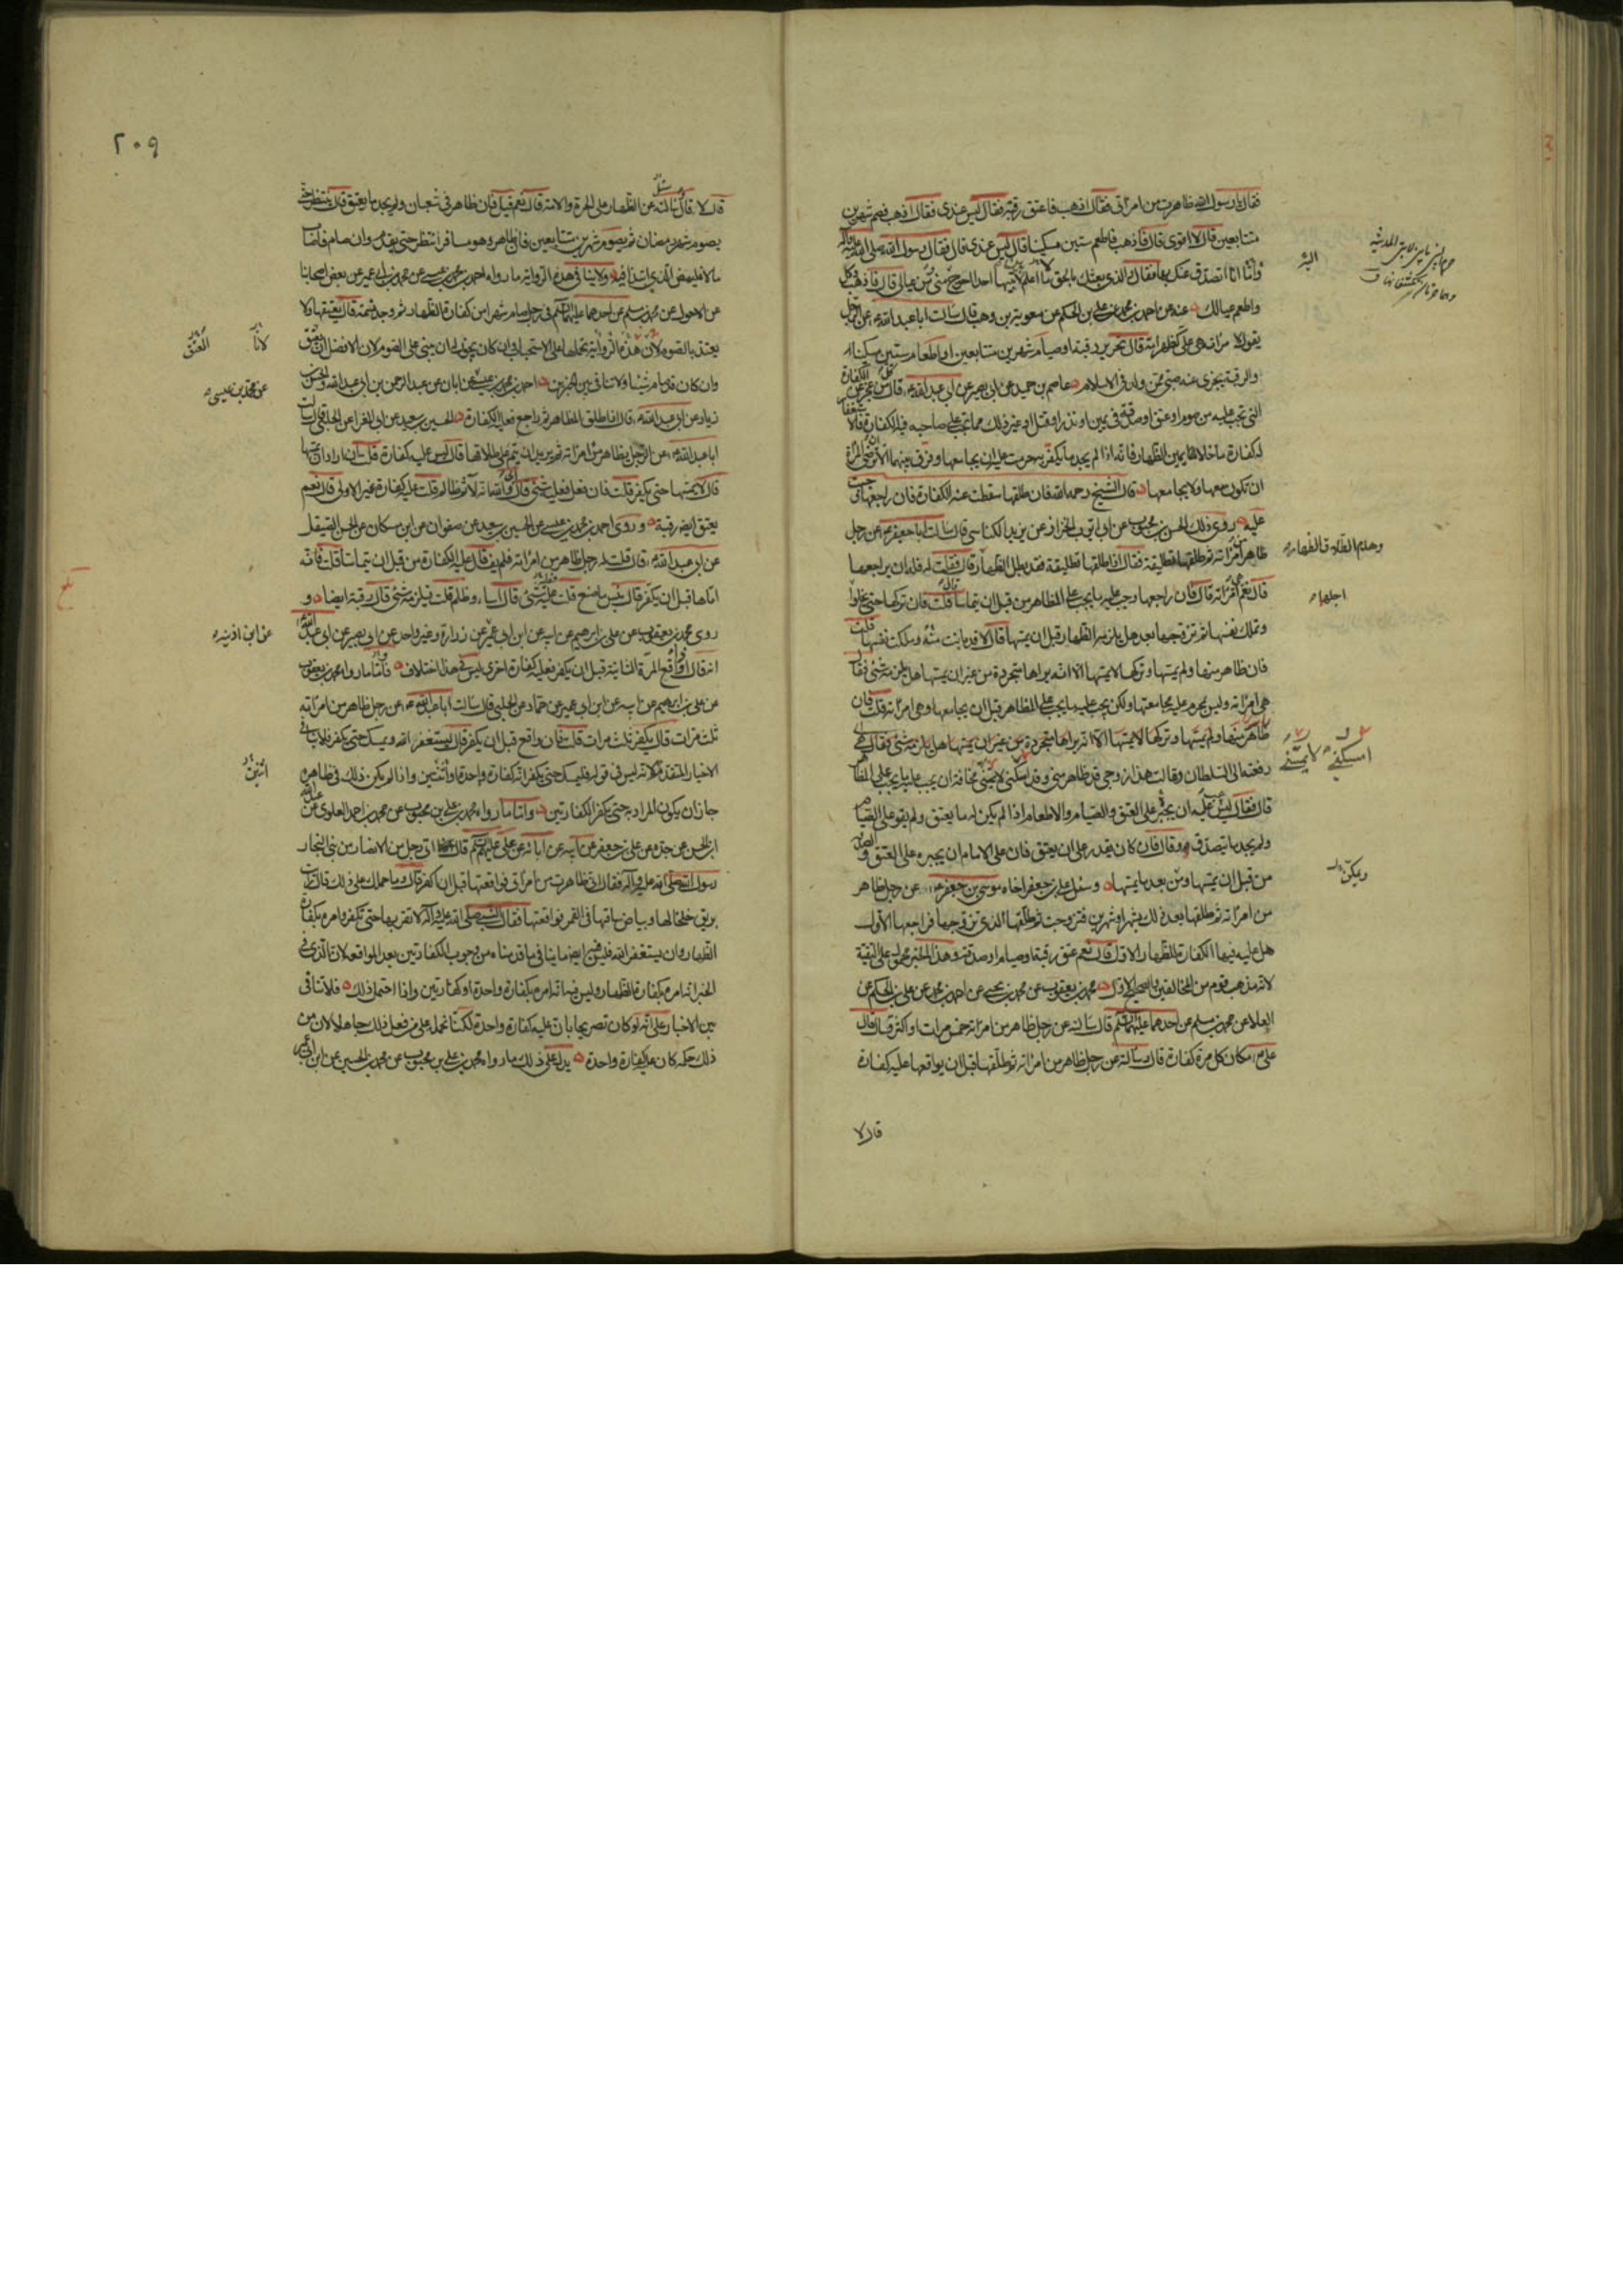 فقال يا رسول الله ظاهرت من امراتى فقال اذهب فاعتق رقبة فقال ليس عندى فقال اذهب فصم شهرين
متتابعين قال لا اقوى قال فاذهب فاطعم ستين مسكينا قال ليس عندى قال فقال رسول الله صلى الله عليه وآله
انا اتصدق عنك فقال والذى بعثك بالحق ما اعلم لابتيها احدا احوج منى من عيالى قال فاذهب فكل
واطعم عيالك عنه عن احمد بن محمد عن على بن الحكم عن معوية بن وهب قال سألت ابا عبد الله عن الرجل
يقول لامراته هى على كظهر امه قال تحرير رقبة او صيام شهرين متتابعين او اطعام ستين مسكينا
والرقبة يجزى عنه صبى ممن ولد فى الاسلام عاصم بن حميد عن ابى بصير عن ابى عبد الله قال كل من عجز عن الكفارة
التى تجب عليه من صوم او عتق او صدقة فى يمين او نذر او قتل او غير ذلك مما يجب على صاحبه فيه الكفارة فالاستغفار
له كفارة ما خلا يمين الظهار فانه اذا لم يجد ما يكفر به حرمت عليه ان يجامعها وفرق بينهما الا ان ترضى المراة
ان تكون معها ولا يجامعها قال الشيخ رحمه الله فان طلقها سقطت عنه الكفارة فان راجعها وجبت
عليه روى ذلك الحسن بن محبوب عن ابى ايوب الخزاز عن يزيد الكناسى قال سألت ابا جعفر عن رجل
ظاهر من امراته ثم طلقها تطليقة فقال اذا طلقها تطليقة فقد بطل الظهار قال فقلت له فله ان يراجعها
قال نعم هى امراته قال فان راجعها وجب عليه ما يجب على المظاهر من قبل ان يتماسا قلت فان تركها حتى يخلو
وتملك نفسها ثم تزوجها بعد هل يلزمه الظهار قبل ان يمسها قال لا قد بانت منه وملكت نفسها قلت
فان ظاهر منها ولم يمسها وتركها لا يمسها الا انه يراها متجردة من غير ان يمسها هل يلزمه شئ فقال
هى امراته وليس يحرم عليه مجامعتها ولكن يجب عليه ما يجب على المظاهر قبل ان يجامعها وهى امراته قلت فان
رفعته الى السلطان وقالت هذا زوجى قد ظاهر منى وقد امسكنى لا يمسنى مخافة ان يجب عليه ما يجب على المظاهر
قال فقال ليس عليه ان يجبر على العتق والصيام والاطعام اذا لم يكن له ما يعتق ولم يقو على الصيام
ولم يجد ما يتصدق به وقال فان كان يقدر على ان يعتق فان على الامام ان يجبره على العتق والصدقة
من قبل ان يمسها ومن بعد ما يمسها وسئل على بن جعفر اخاه موسى بن جعفر عن رجل ظاهر
من امراته ثم طلقها بعد ذلك بشهر او شهرين فتزوجت ثم طلقها الذى تزوجها فراجعها الاول
هل عليه فيها الكفارة للظهار الاول قال نعم عتق رقبة او صيام او صدقة وهذا الخبر محمول على التقية
لانه مذهب قوم من المخالفين والصحيح الاول محمد بن يعقوب عن محمد بن يحيى عن احمد بن محمد عن على بن الحكم عن
العلا عن محمد بن مسلم عن احدهما عليهما السلم قال سألته عن رجل ظاهر من امراته خمس مرات او اكثر فقال قال
على مكان كل مرة كفارة قال سألته عن رجل ظاهر من امراته ثم طلقها قبل ان يواقعها عليه كفارة
قال لا
وهدم الطلاق الظهار
اجلها
ويكن
٢٠٩
قال لا قال سألته عن الظهار على الحرة والامة قال نعم قيل فان ظاهر فى شعبان ولم يجد ما يعتق قال ينتظر حتى
يصوم شهر رمضان ثم يصوم شهرين متتابعين فان ظاهر وهو مسافر انتظر حتى يقدم وان صام فاصاب
مالا فليمض الذى ابتدا فيه ولا ينافى هذه الرواية ما رواه احمد بن محمد بن عيسى عن محمد بن ابى عمير عن بعض اصحابنا
عن الاحول عن محمد بن مسلم عن احدهما عليهما السلم فى رجل صام شهرا من كفارة الظهار ثم وجد نسمة قال يعتقها ولا
يعتد بالصوم لان هذه الرواية نحملها على الاستحباب
وان كان قد صام شيئا ولا تنافى بين الخبرين احمد بن محمد بن عيسى عن ابان عن عبد الرحمن بن ابى عبد الله والحسن
زياد عن ابى عبد الله قال اذا طلق المظاهر ثم راجع فعليه الكفارة الحسين بن سعيد عن ابى المغرا عن الحلبى قال سألت
ابا عبد الله عن الرجل يظاهر من امراته ثم يريد ان يتم على طلاقها قال ليس عليه كفارة قلت فان اراد ان يمسها
قال لا يمسها حتى يكفر قلت فان فعل فعليه شئ قال اى والله انه لآثم ظالم قلت عليه كفارة غير الاولى قال نعم
يعتق ايضا رقبة وروى احمد بن محمد بن عيسى عن الحسين بن سعيد عن صفوان عن ابن مسكان عن الحسن الصيقل
عن ابى عبد الله قال قلت له رجل ظاهر من امراته فلم يف قال عليه الكفارة من قبل ان يتماسا قلت فانه
اتاها قبل ان يكفر قال بئس ما صنع قلت عليه شئ قال اساء وظلم قلت فيلزمه شئ قال رقبة ايضا و
روى محمد بن يعقوب عن على بن ابراهيم عن ابيه عن ابن ابى عمير عن زرارة وغير واحد عن ابى بصير عن ابى عبد الله
انه قال اذا واقع المرة الثانية قبل ان يكفر فعليه كفارة اخرى ليس فى هذا اختلاف فاما ما رواه محمد بن يعقوب
عن على بن ابرهيم عن ابيه عن ابن ابى عمير عن حماد عن الحلبى قال سألت ابا عبد الله عن رجل ظاهر من امراته
ثلث مرات قال يكفر ثلث مرات قلت فان واقع قبل ان يكفر قال يستغفر الله ويمسك حتى يكفر فلا ينافى
الاخبار المتقدمة لانه ليس فى قوله فليمسك حتى يكفر انه كفارة واحدة او اثنتين واذا لم يكن ذلك فى ظاهره
جاز ان يكون المراد حتى يكفر الكفارتين واما ما رواه محمد بن على بن محبوب عن محمد بن احمد العلوى عن
ابن الحسن عن جده عن على بن جعفر عن اخيه عن آبائه عن على عليهم السلم قال اتى رجل من الانصار من بنى النجار
رسول الله صلى الله عليه وآله فقال انى ظاهرت من امراتى فواقعتها قبل ان اكفر قال وما حملك على ذلك قال رايت
بريق خلخالها وبياض ساقها فى القمر فواقعتها فقال النبى صلى الله عليه وآله لا تقربها حتى تكفر وامره بكفارة
الظهار وان يستغفر الله فليس فيه ايضا ما ينافى ما قدمناه من وجوب الكفارتين بعد المواقعة لان الذى فى
الخبر انه امره بكفارة الظهار وليس فيه انه امره بكفارة واحدة او كفارتين واذا احتمل ذلك فلا تنافى
بين الاخبار على انه لو كان تصريحا بان عليه كفارة واحدة لكنا نحمله على من فعل ذلك جاهلا لان من
ذلك حكمه كان عليه كفارة واحدة يدل على ذلك ما رواه محمد بن على بن محبوب عن محمد بن الحسين عن ابن ابى عمير
عن محمد بن عيسى
عن ابن اذينه